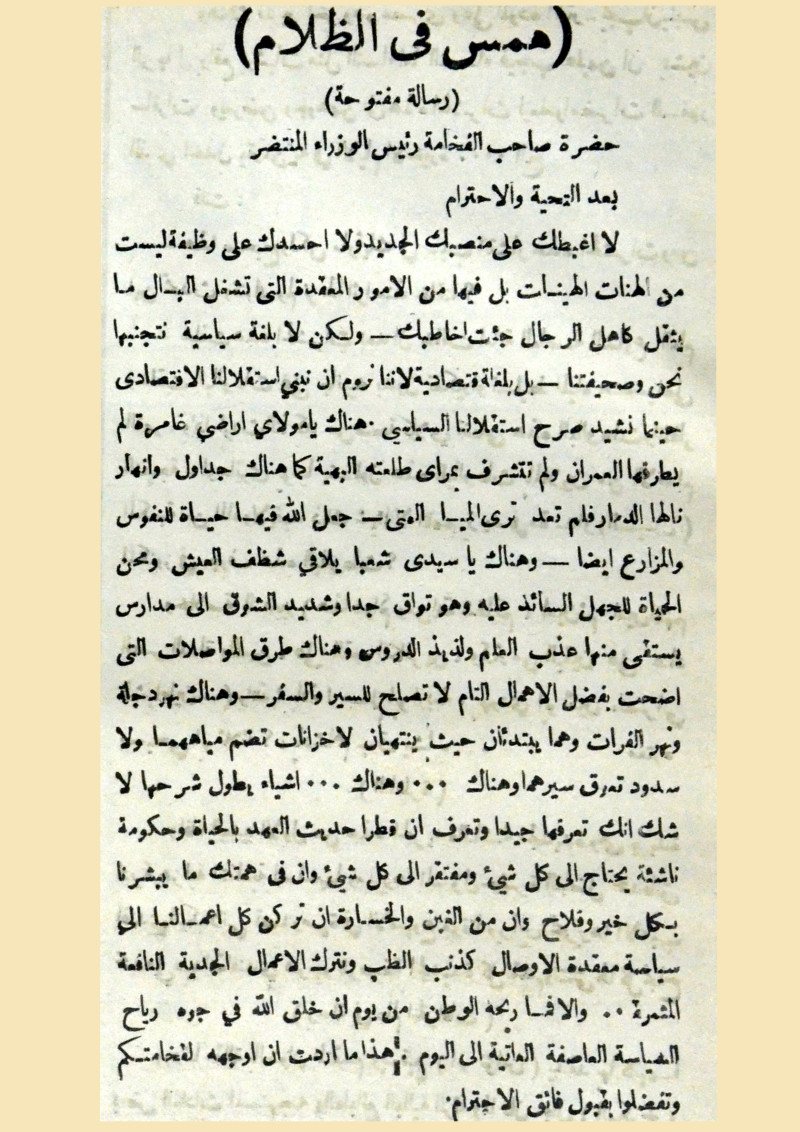 (همس فى الظلام)
(رسالة مفتوحة)
حضرة صاحب الفخامة رئيس الوزراء المنتضر
بعد التحية والاحترام
لا اغبطك على منصبك الجديد ولا احسدك على وظيفة ليست
من الهنات الهينات بل فيها من الامور المعقدة التى تشغل البال ما
يثقل كاهل الرجال جئت اخاطبك — ولكن لا بلغة سياسية نتجنبها
نحن وصحيفتنا — بل بلغة اقتصادية لاننا نروم ان نبني استقلالنا الاقتصادى
حينما نشيد صرح استقلالنا السياسي . هناك يامولاي اراضي غامرة لم
يطارقها العمران ولم تتشرف بمراى طلعته البهية كما هناك جداول وانهار
نالها الدمار فلم تعد ترى الميا التى — جعل الله فيها حياة للنفوس
والمزارع ايضا — وهناك يا سيدى شعبا يلاقي شظف العيش ومحن
الحياة للجهل السائد عليه وهو تواق جدا وشديد الشوق الى مدارس
يستقى منها عذب العلم ولذيذ الدروس وهناك طرق المواصلات التى
اضحت بفضل الاهمال التام لا تصلح للسير والسفر — وهناك نهر دجلة
ونهر الفرات وهما يبتدئان حيث ينتهيان لا خزانات تضم مياههما ولا
سدود تعرق سيرهما وهناك ... وهناك ... اشياء يطول شرحها لا
شك انك تعرفها جيدا وتعرف ان قطرا حديث العهد بالحياة وحكومة
ناشئة يحتاج الى كل شيئ ومفتقر الى كل شيئ وان فى همتك ما يبشرنا
بكل خير وفلاح وان من الغبن والخسارة ان تركن كل اعمالنا الى
سياسة معقدة الاوصال كذنب الظب ونترك الاعمال الجدية النافعة
المثمرة .. والا فما ربحه الوطن من يوم ان خلق الله في جوه رياح
السياسة العاصفة العاتية الى اليوم . هذا ما اردت ان اوجهه لفخامتكم
وتفضلوا بقبول فائق الاحترام.